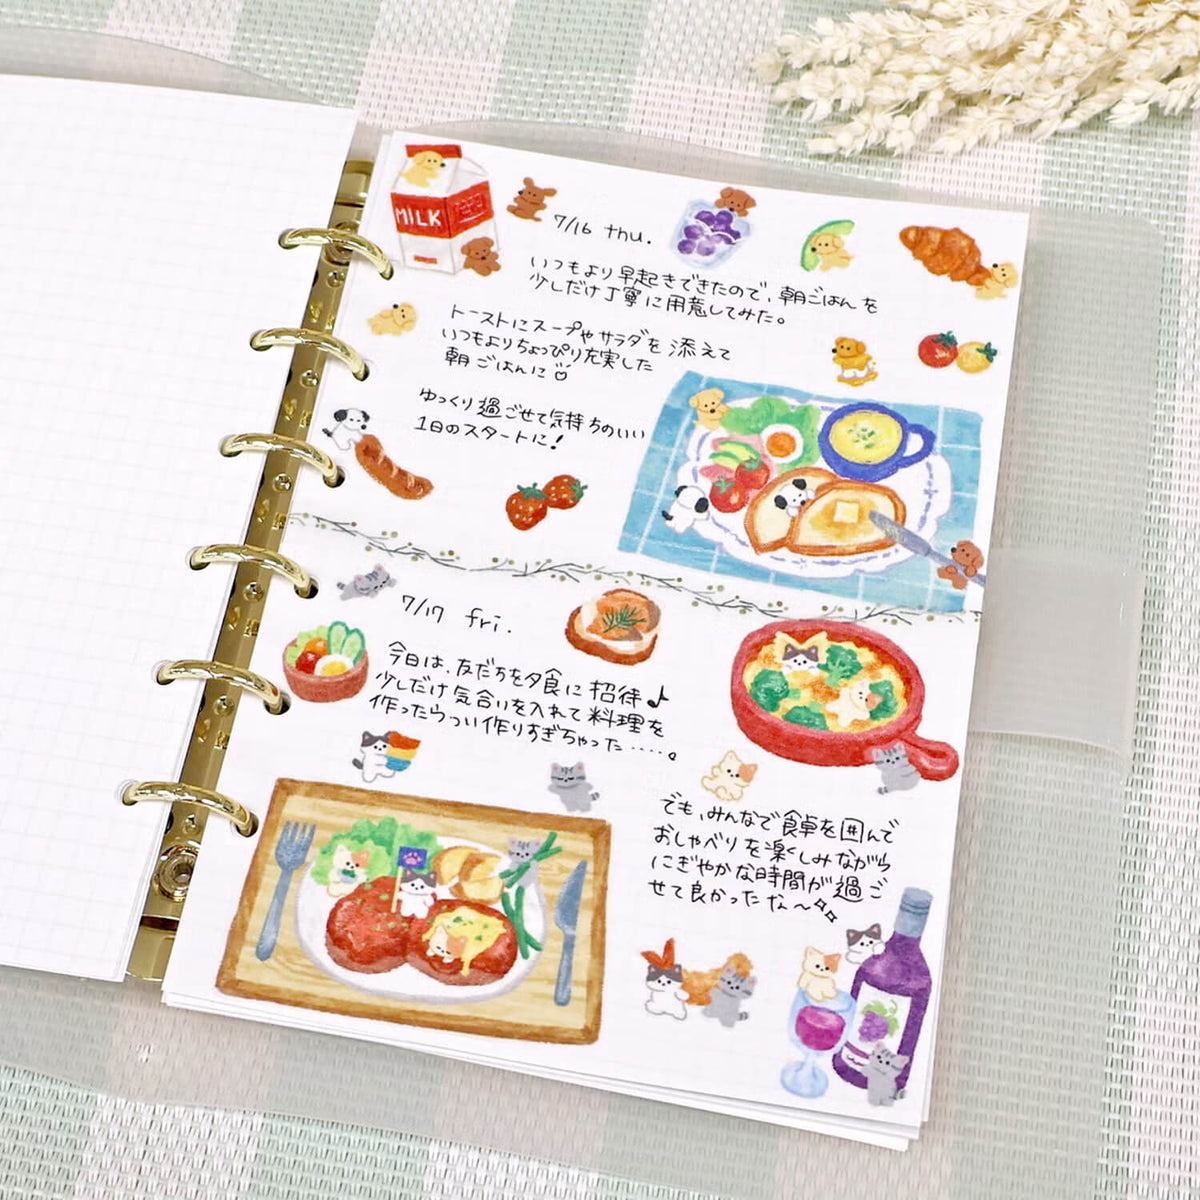 MILK
7/16 thu.
いつもより早起きできたので、朝ごはんを
少しだけ丁寧に用意してみた。
トーストにスープやサラダを添えて
いつもよりちょっぴり充実した
朝ごはんに♡
ゆっくり過ごせて気持ちのいい
1日のスタートに!
7/17 fri.
今日は、友だちを夕食に招待♪
少しだけ気合いを入れて料理を
作ったらつい作りすぎちゃった‥‥。
でも、みんなで食卓を囲んで
おしゃべりを楽しみながら
にぎやかな時間が過ご
せて良かったな〜